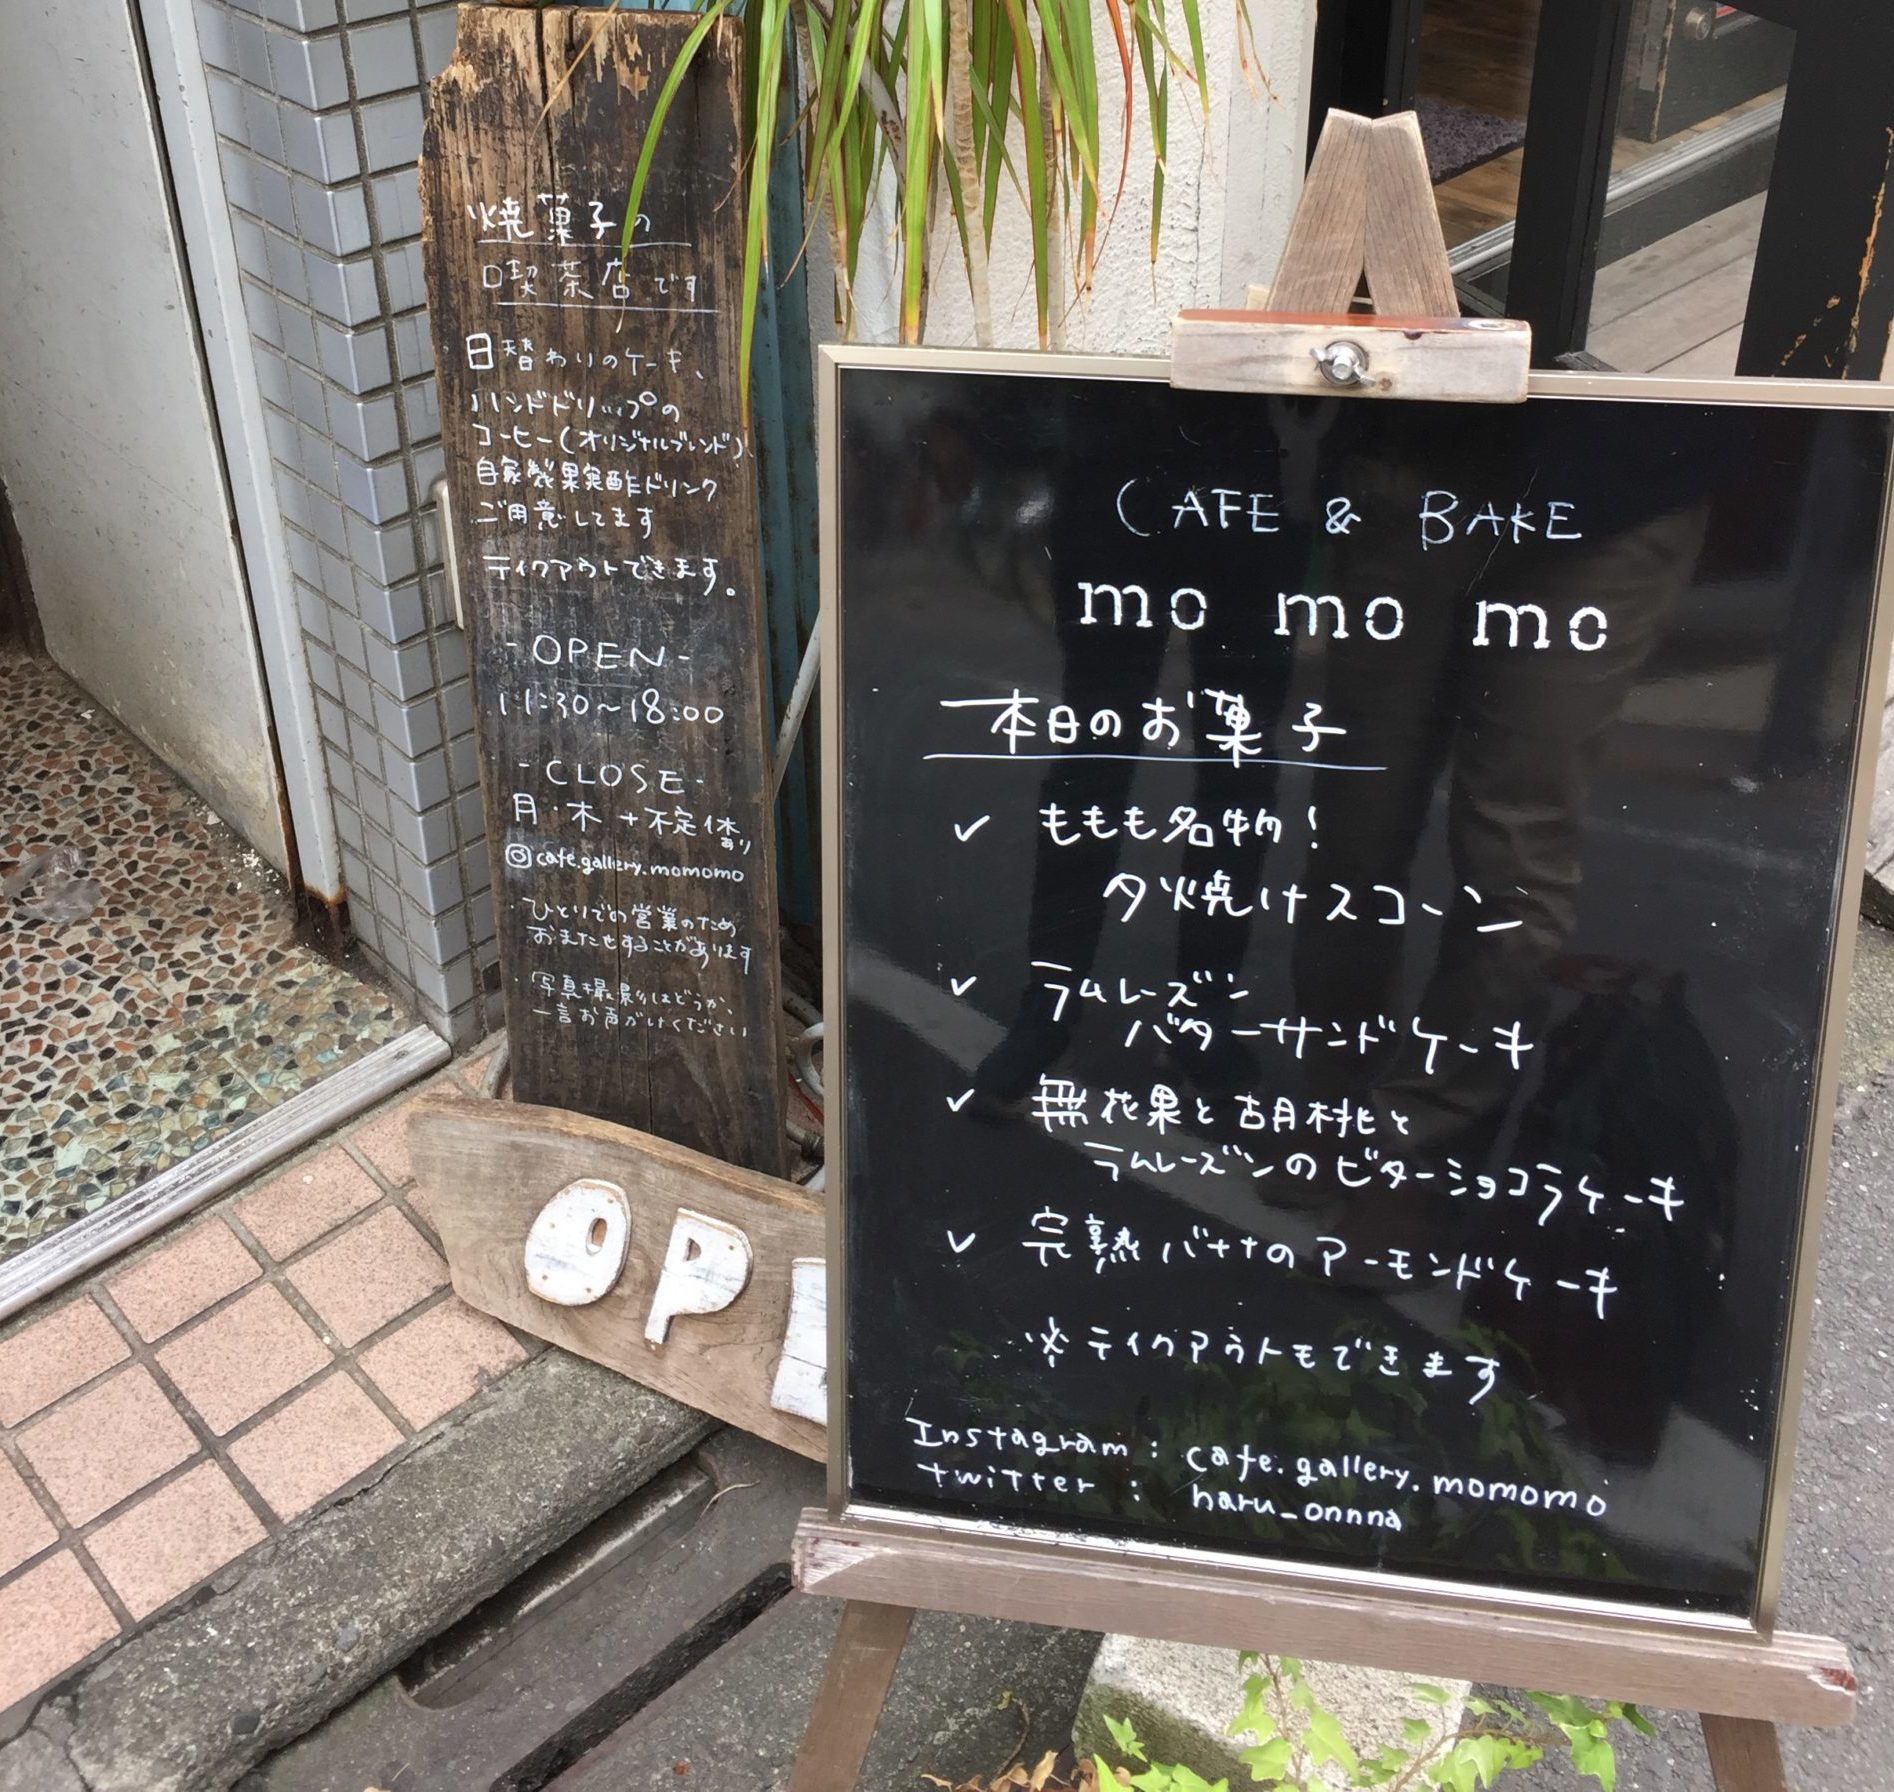 焼菓子の
喫茶店です
日替わりのケーキ、
ハンドドリップの
コーヒー(オリジナルブレンド)、
自家製果実酢ドリンク
ご用意してます
テイクアウトできます。
- OPEN -
11:30〜18:00
- CLOSE -
月・木 + 不定休あり
cafe.gallery.momomo
・ひとりでの営業のため
おまたせすることがあります
・写真撮影はどうか、
一言お声がけください
OP
CAFE & BAKE
mo mo mo
本日のお菓子
✓ ももも名物!
夕焼けスコーン
✓ ラムレーズン
バターサンドケーキ
✓ 無花果と胡桃と
ラムレーズンのビターショコラケーキ
✓ 完熟バナナのアーモンドケーキ
※テイクアウトもできます
Instagram : cafe.gallery.momomo
twitter : haru_onnna